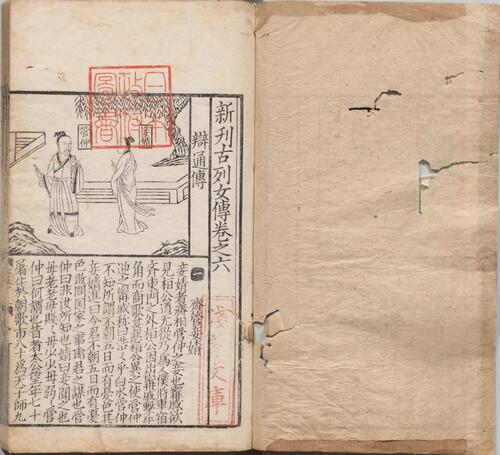 新刊古列女傳卷之六
辯通傳
日本
政府
圖書
妾婧
管仲
一 齊管妾婧
妾婧者齊相管仲之妾也甯戚欲
見桓公道無從乃爲人僕將車宿
齊東門之外桓公因出甯戚擊牛
角而商歌甚悲桓公異之使管仲
迎之甯戚稱曰浩々乎白水管仲
不知所謂不朝五日而有憂色其
妾婧進曰今君不朝五日而有憂
色敢問国家之事耶君之謀也管
仲曰非汝所知也婧曰妾聞之也
毋老老毋賤々毋少々毋弱々管
仲曰何謂也昔者太公望年七十
屠牛於朝歌市八十爲天子師九
淺草文庫